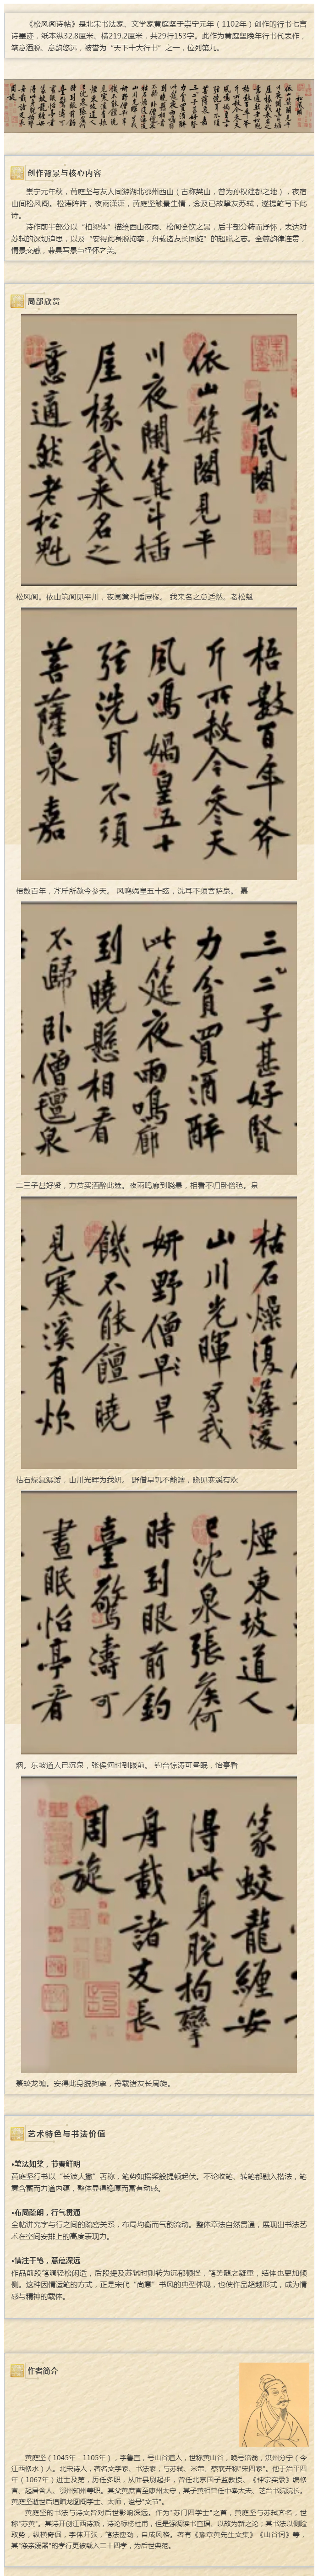 《松风阁诗帖》是北宋书法家、文学家黄庭坚于崇宁元年（1102年）创作的行书七言
诗墨迹，纸本纵32.8厘米、横219.2厘米，共29行153字。此作为黄庭坚晚年行书代表作，
笔意洒脱、意韵悠远，被誉为“天下十大行书”之一，位列第九。
创作背景与核心内容
崇宁元年秋，黄庭坚与友人同游湖北鄂州西山（古称樊山，曾为孙权建都之地），夜宿
山间松风阁。松涛阵阵，夜雨潇潇，黄庭坚触景生情，念及已故挚友苏轼，遂提笔写下此
诗。
诗作前半部分以“柏梁体”描绘西山夜雨、松阁会饮之景，后半部分转而抒怀，表达对
苏轼的深切追思，以及“安得此身脱拘挛，舟载诸友长周旋”的超脱之志。全篇韵律连贯，
情景交融，兼具写景与抒怀之美。
局部欣赏
松風閣
依山築閣見平
川夜闌箕斗插
屋椽我来名之
意適然老松魁
松风阁。依山筑阁见平川，夜阑箕斗插屋椽。 我来名之意适然。老松魁
梧數百年斧
斤所赦今参天
風鳴媧皇五十
弦洗耳不須
菩薩泉嘉
梧数百年，斧斤所赦今参天。 风鸣娲皇五十弦，洗耳不须菩萨泉。 嘉
三二子甚好賢
力貧買酒醉
此筵夜雨鳴廊
到曉懸相看
不歸卧僧氊泉
二三子甚好贤，力贫买酒醉此筵。夜雨鸣廊到晓悬，相看不归卧僧毡。泉
枯石燥復潺湲
山川光暉為我
妍野僧早旱
飢不能饘曉
見寒溪有炊
枯石燥复潺湲，山川光晖为我妍。 野僧旱饥不能饘，晓见寒溪有炊
煙東坡道人
已沈泉張侯何
時到眼前釣
臺驚濤可
晝眠怡亭看
烟。东坡道人已沉泉，张侯何时到眼前。 钓台惊涛可昼眠，怡亭看
篆蛟龍纏安
得此身脱拘攣
舟載諸友長
周旋
篆蛟龙缠。安得此身脱拘挛，舟载诸友长周旋。
艺术特色与书法价值
•笔法如桨，节奏鲜明
黄庭坚行书以“长波大撇”著称，笔势如摇桨般提顿起伏。不论收笔、转笔都融入楷法，笔
意含蓄而力道内蕴，整体显得稳厚而富有动感。
•布局疏朗，行气贯通
全帖讲究字与行之间的疏密关系，布局均衡而气韵流动。整体章法自然贯通，展现出书法艺
术在空间安排上的高度表现力。
•情注于笔，意蕴深远
作品前段笔调轻松闲适，后段提及苏轼时则转为沉郁顿挫，笔势随之凝重，结体也更加倾
侧。这种因情运笔的方式，正是宋代“尚意”书风的典型体现，也使作品超越形式，成为情
感与精神的载体。
作者简介
黄庭坚（1045年－1105年），字鲁直，号山谷道人，世称黄山谷，晚号涪翁，洪州分宁（今
江西修水）人。北宋诗人，著名文学家、书法家，与苏轼、米芾、蔡襄并称“宋四家”。他于治平四
年（1067年）进士及第，历任多职，从叶县尉起步，曾任北京国子监教授、《神宗实录》编修
官、起居舍人、鄂州知州等职。其父黄庶官至康州太守，其子黄相曾任中奉大夫、芝台书院院长。
黄庭坚逝世后追赠龙图阁学士、太师，谥号“文节”。
黄庭坚的书法与诗文皆对后世影响深远。作为“苏门四学士”之首，黄庭坚与苏轼齐名，世
称“苏黄”。其诗开创江西诗派，诗论标榜杜甫，但是强调读书查据、以故为新之论；其书法以侧险
取势，纵横奇倔，字体开张，笔法瘦劲，自成风格。著有《豫章黄先生文集》《山谷词》等，
其“涤亲溺器”的孝行更被载入二十四孝，为后世典范。